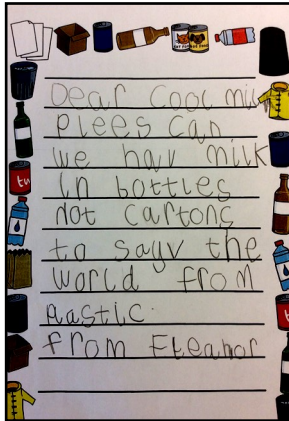 Dear Cool milk
Plees can
we hav milk
in bottles
not cartons
to sayv the
world from
plastic.
from Eleanor